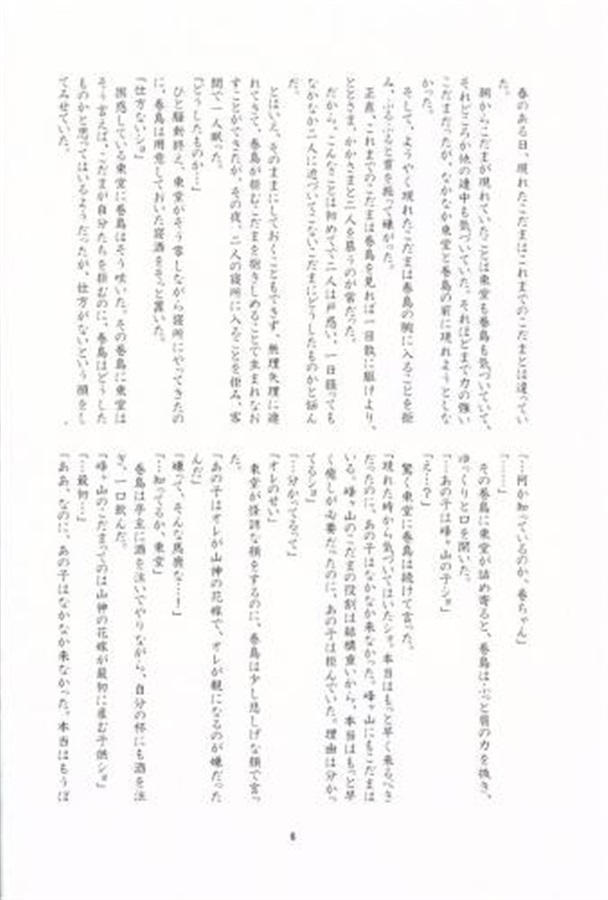 春のある日、現れたこだまはこれまでのこだまとは違ってい
た。
朝からこだまが現れていたことは東堂も巻島も気づいていて、
それどころか他の連中も気づいていた。それほどまで力の強い
こだまだったが、なかなか東堂と巻島の前に現れようとしな
かった。
そして、ようやく現れたこだまは巻島の腕に入ることを拒
み、ぶるぶると首を振って嫌がった。
正直、これまでのこだまは巻島を見れば一目散に駆けより、
ととさま、かかさまと二人を慕うのが常だった。
だから、こんなことは初めてで二人は戸惑い、一日経っても
なかなか二人に近づいてこないこだまにどうしたものかと悩ん
だ。
とはいえ、そのままにしておくこともできず、無理矢理に連
れてきて、巻島が拒むこだまを抱きしめることで生まれなお
すことができたが、その夜、二人の寝所に入ることを拒み、客
間で一人眠った。
「どうしたものか…」
ひと騒動終え、東堂がそう零しながら寝所にやってきたの
に、巻島は用意しておいた寝酒をそっと置いた。
「仕方ないショ」
困惑している東堂に巻島はそう呟いた。その巻島に東堂は
そう言えば、こだまが自分たちを拒むのに、巻島はどうした
ものかと思ってはいるようだったが、仕方がないという顔をし
てみせていた。
「…何か知っているのか、巻ちゃん」
「……」
その巻島に東堂が詰め寄ると、巻島はふっと肩の力を抜き、
ゆっくりと口を開いた。
「…あの子は峰ヶ山の子ショ」
「え…?」
驚く東堂に巻島は続けて言った。
「現れた時から気づいてはいたショ。本当はもっと早く来るべき
だったのに、あの子はなかなか来なかった。峰ヶ山にもこだまは
いる。峰ヶ山のこだまの役割は結構重いから、本当はもっと早
く癒しが必要だったのに、あの子は拒んでいた。理由は分かっ
てるショ」
「…分かってるって」
「オレのせい」
東堂が怪訝な顔をするのに、巻島は少し悲しげな顔で言っ
た。
「あの子はオレが山神の花嫁で、オレが親になるのが嫌だった
んだ」
「嫌って、そんな馬鹿な…!」
「…知ってるか、東堂」
巻島は亭主に酒を注いでやりながら、自分の杯にも酒を注
ぎ、一口飲んだ。
「峰ヶ山のこだまってのは山神の花嫁が最初に産む子供ショ」
「…最初…」
「ああ、なのに、あの子はなかなか来なかった。本当はもうぼ
6